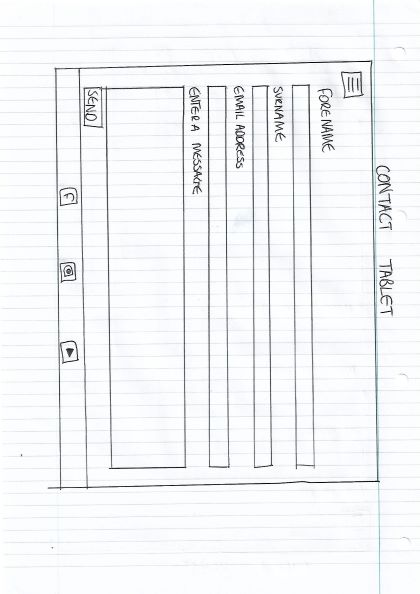 CONTACT TABLET
FORENAME
SURNAME
EMAIL ADDRESS
ENTER A MESSAGE
SEND
f